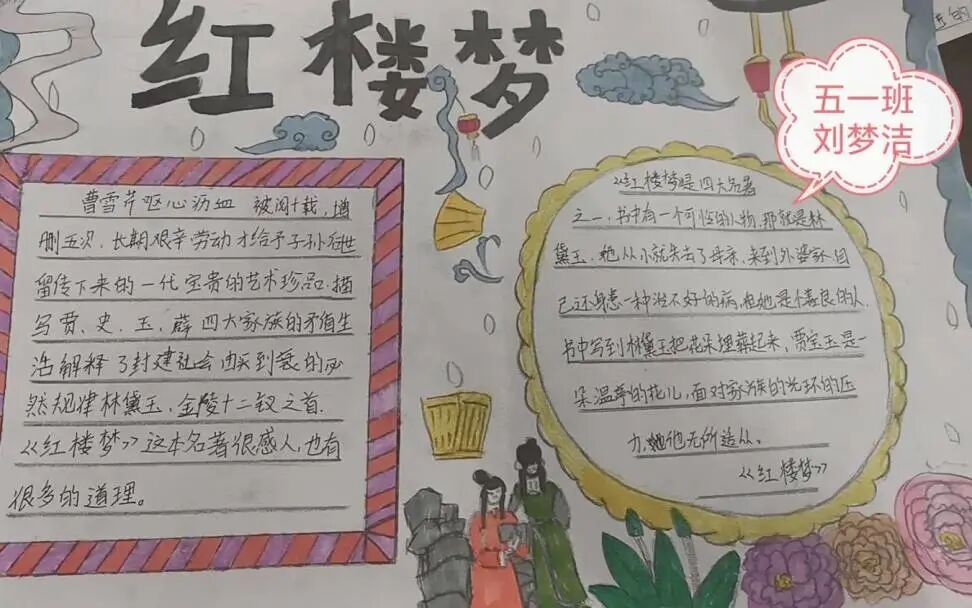 红楼梦
五一班
刘梦洁
曹雪芹呕心沥血 被阅十载,增
删五次,长期艰辛劳动才给予子孙后世
留传下来的一代宝贵的艺术珍品.描
写贾、史、王、薛四大家族的矛盾生
活解释了封建社会由兴到衰的必
然规律林黛玉,金陵十二钗之首.
《红楼梦》这本名著很感人,也有
很多的道理。
《红楼梦》是四大名著
之一,书中有一个可怜的人物,那就是林
黛玉,她从小就失去了母亲,来到外婆家,自
己还身患一种治不好的病,但她是个善良的人.
书中写到林黛玉把花朵埋葬起来,贾宝玉是一
朵温室的花儿,面对家族的光环的压
力,她他无所适从。
《红楼梦》